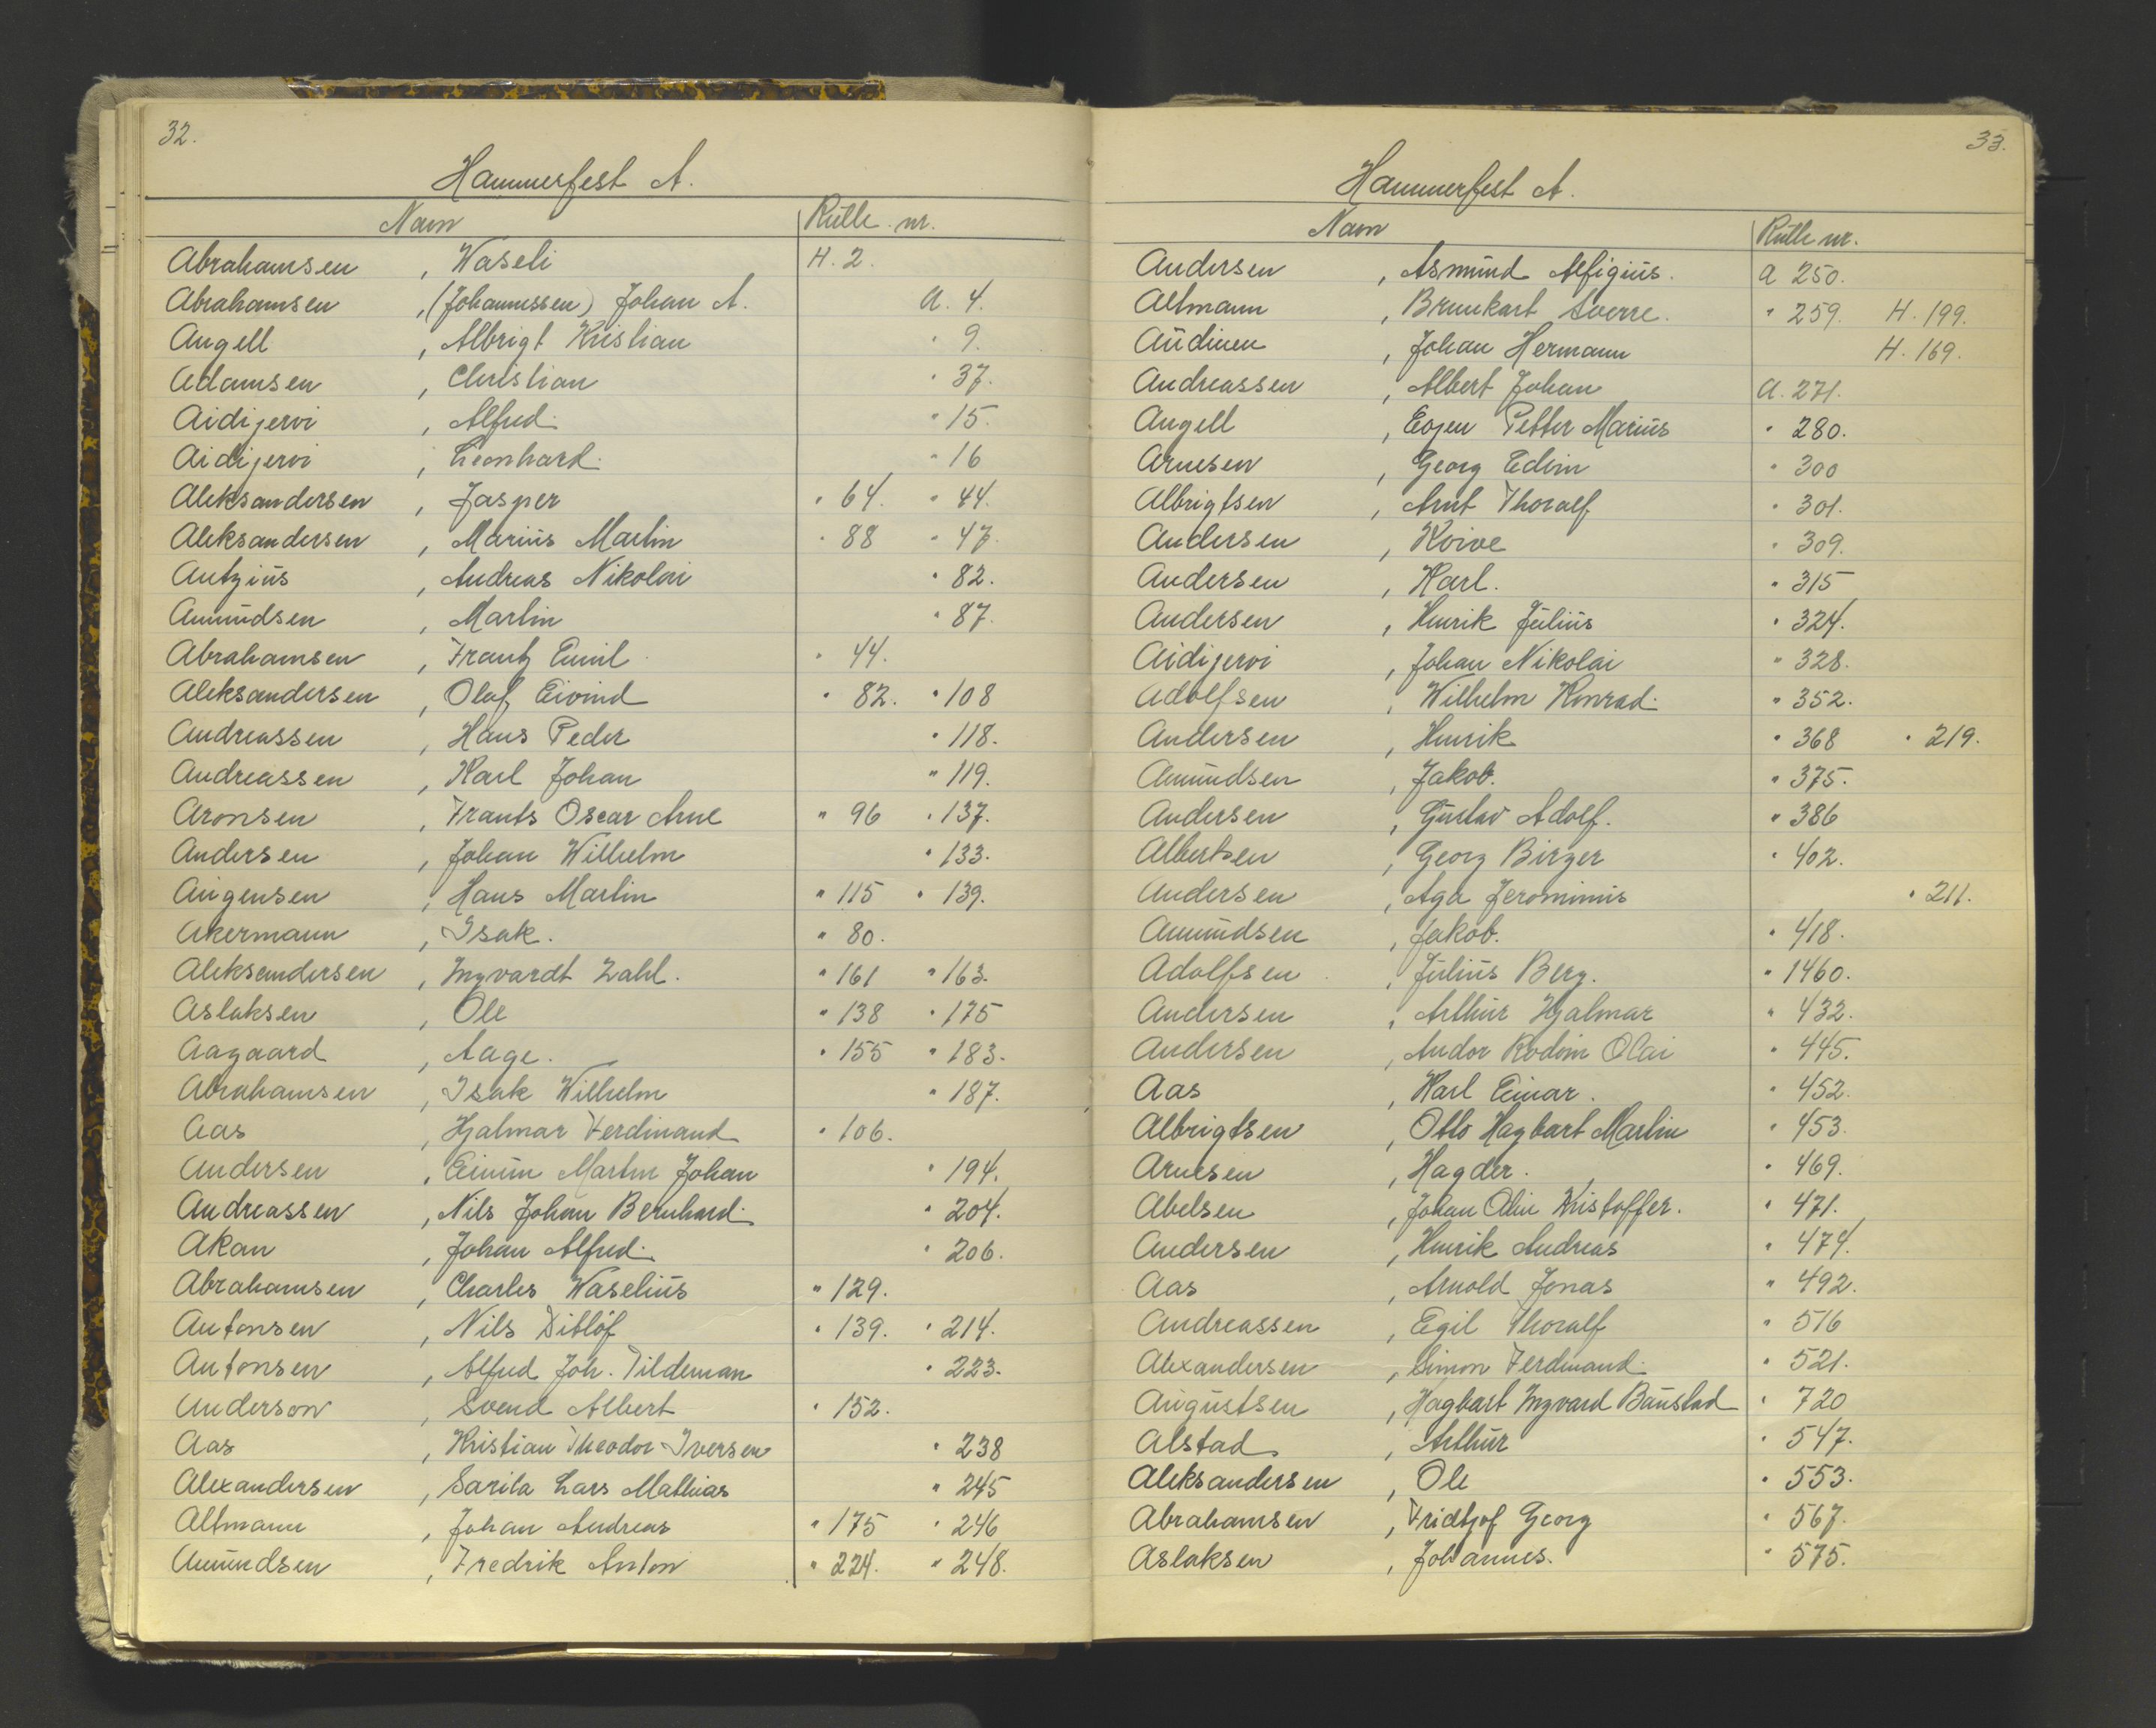 32.
Hammerfest A.
Navn Rulle nr.
Abrahamsen , Waseli H. 2.
Abrahamsen , (Johannessen) Johan A. A. 4.
Angell , Albrigt Kristian " 9.
Adamsen , Christian " 37.
Aidijervi , Alfred. " 15.
Aidijervi , Leonhard. " 16
Aleksandersen , Jasper " 64. " 44.
Aleksandersen , Marius Martin " 88 " 47.
Antzius , Andreas Nikolai " 82.
Amundsen , Martin " 87.
Abrahamsen , Frantz Emil " 44.
Aleksandersen , Olaf Eivind " 82. " 108
Andreassen , Hans Peder " 118.
Andreassen , Karl Johan " 119.
Aronsen , Frants Oscar Arne " 96 " 137.
Andersen , Johan Wilhelm " 133.
Augensen , Hans Martin " 115 " 139.
Akermann , Isak. " 80.
Aleksandersen , Ingvardt Zahl. " 161 " 163.
Aslaksen , Ole " 138 " 175
Aagaard , Aage. " 155 " 183.
Abrahamsen , Isak Wilhelm " 187.
Aas , Hjalmar Ferdinand " 106.
Andersen , Martin Johan " 194.
Andreassen , Nils Johan Bernhard. " 204.
Akan , Johan Alfred. " 206.
Abrahamsen , Charles Waselius " 129.
Antonsen , Nils Ditlof " 139. " 214.
Antonsen , Alfred Joh. Tildeman " 223.
Anderson , Svend Albert " 152.
Aas , Kristian Theodor Iversen " 238
Alexandersen , Sarila Lars Mathias " 245
Altmann , Johan Andreas " 175 " 246
Amundsen , Fredrik Anton " 224. " 248.
33.
Hammerfest A.
Navn Rulle nr.
Andersen , Asmund Alfigius. A 250.
Altmann , Brunkart Sverre. " 259. H. 199.
Audinen , Johan Hermann H. 169.
Andreassen , Albert Johan A. 271.
Angell , Eojen Petter Marius " 280.
Arnesen , Georg Edvin " 300
Albrigtsen , Arnt Thoralf " 301.
Andersen , Koive " 309.
Andersen , Karl. " 315
Andersen , Henrik Julius " 324.
Aidijervi , Johan Nikolai " 328.
Adolfsen , Wilhelm Konrad. " 352.
Andersen , Henrik " 368 " 219.
Amundsen , Jakob. " 375.
Andersen , Gustav Adolf. " 386
Albertsen , Georg Birger " 402.
Andersen , Aga Jeronimus " 211.
Amundsen , Jakob. " 418.
Adolfsen , Julius Berg. " 1460.
Andersen , Arthur Hjalmar " 432.
Andersen , Andor Rodvin Olai " 445.
Aas , Karl Einar. " 452.
Albrigtsen , Otto Hagbart Martin " 453.
Arnesen , Hagder. " 469.
Abelsen , Johan Olin Kristoffer. " 471.
Andersen , Henrik Andreas " 474.
Aas , Arnold Jonas " 492.
Andreassen , Egil Thoralf " 516
Alexandersen , Simon Ferdinand. " 521.
Augustsen , Hagbart Ingvard Baustad " 720
Alstad , Arthur " 547.
Aleksandersen , Ole " 553.
Abrahamsen , Fridtjof Georg " 567.
Aslaksen , Johannes. " 575.